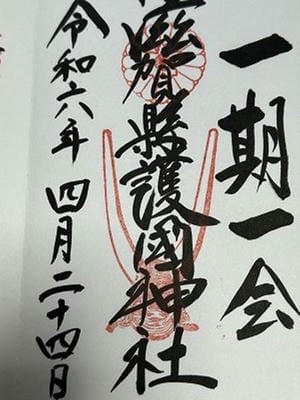 一期一会
滋賀縣護國神社
令和六年四月二十四日